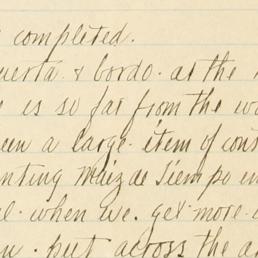 completed.
uerta & bordo. at the
e is so far from the wo
een a large item of cons
nting Maiz de Siempo in
el. when we. get more
put across the a